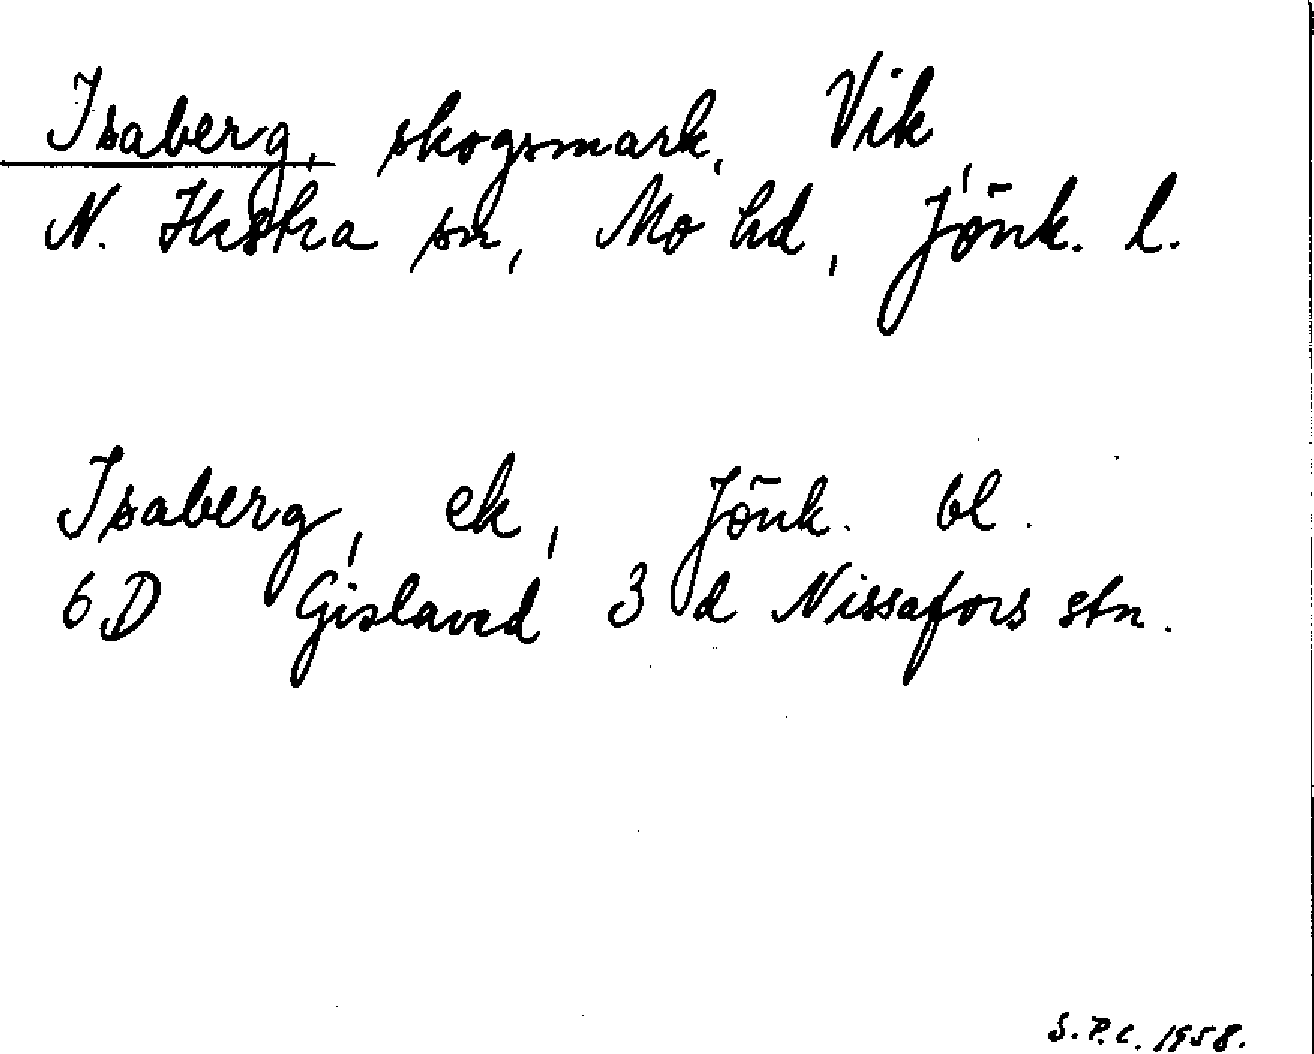 Isaberg, skogsmark, Vik,
N. Hestra sn, Mo hd, Jönk. l.
Isaberg, ek, Jönk. bl.
6D Gislaved 3 d Nissafors stn.
S.P.C. 1958.